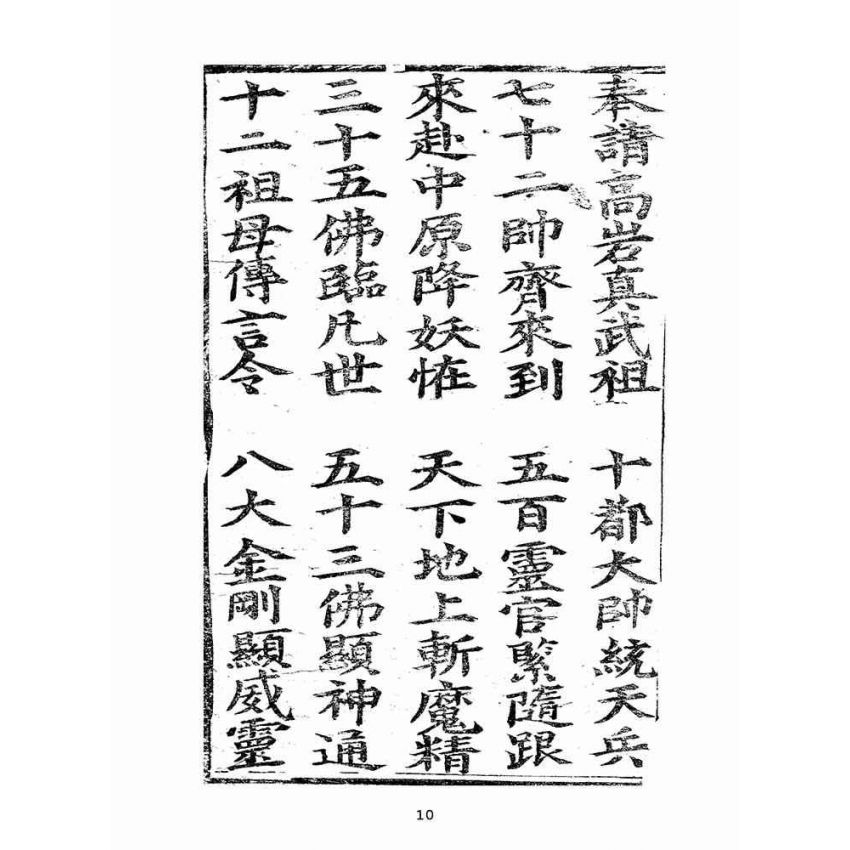 奉請高岩真武祖　十都大帥統天兵
七十二帥齊來到　五百靈官緊隨跟
來赴中原降妖恠　天下地上斬魔精
三十五佛臨凡世　五十三佛顯神通
十二祖母傳言令　八大金剛顯威靈
10